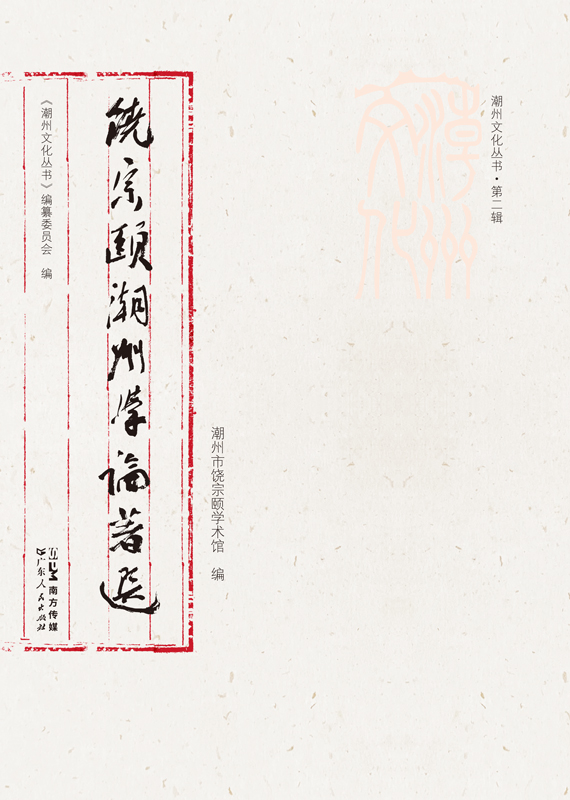 潮州文化丛书·第二辑
潮州文化
潮州市饶宗颐学术馆 编
饶宗颐潮州学论著选
《潮州文化丛书》编纂委员会 编
南方传媒
广东人民出版社